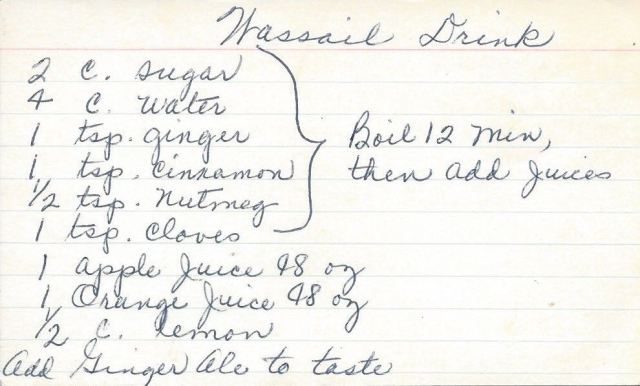 Wassail Drink
2 c. sugar
4 c. water
1 tsp. ginger
1 tsp. cinnamon
1/2 tsp. Nutmeg
1 tsp. cloves
Boil 12 min,
then add juices
1 apple juice 48 oz
1 Orange juice 48 oz
1/2 c. lemon
Add Ginger Ale to taste